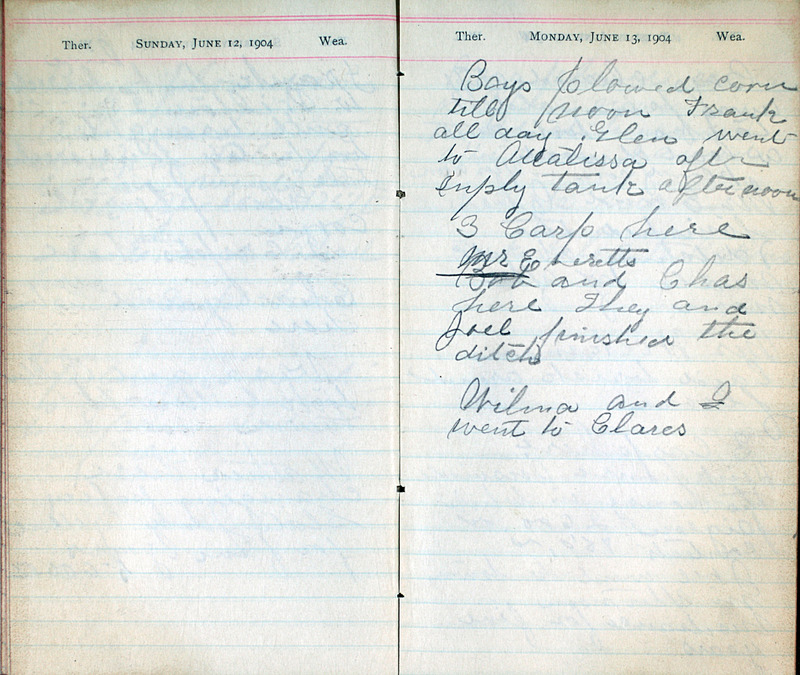 Ther. SUNDAY, JUNE 12, 1904 Wea.
Ther. MONDAY, JUNE 13, 1904 Wea.
Boys plowed corn
till noon Frank
all day. Glen went
to Atalissa aft
suply tank afternoon
3 Carp here
Mr Everetts
Bob and Chas
here They and
Joel finished the
ditch
Wilma and I
went to Clares